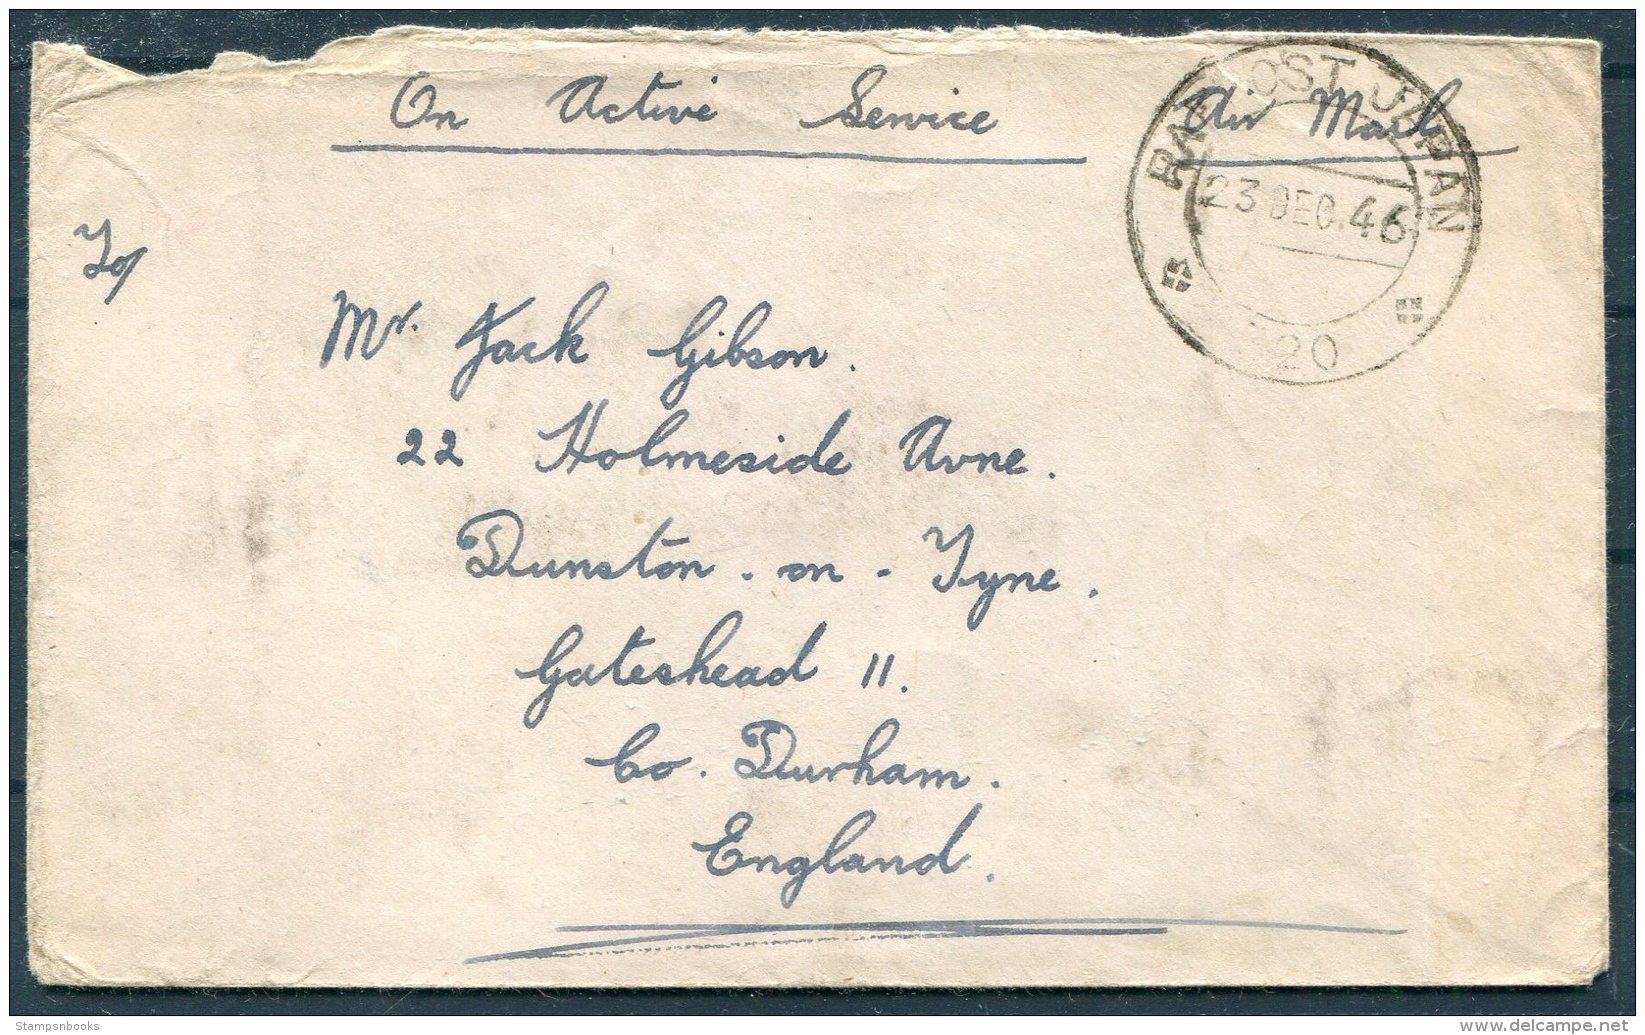 On Active Service Air Mail
RAF POST JAPAN
23 DEC. 46
20
To/
Mr. Jack Gibson.
22 Holmeside Avne.
Dunston-on-Tyne.
Gateshead 11.
Co. Durham.
England.
Stampsnbooks
delcampe.com